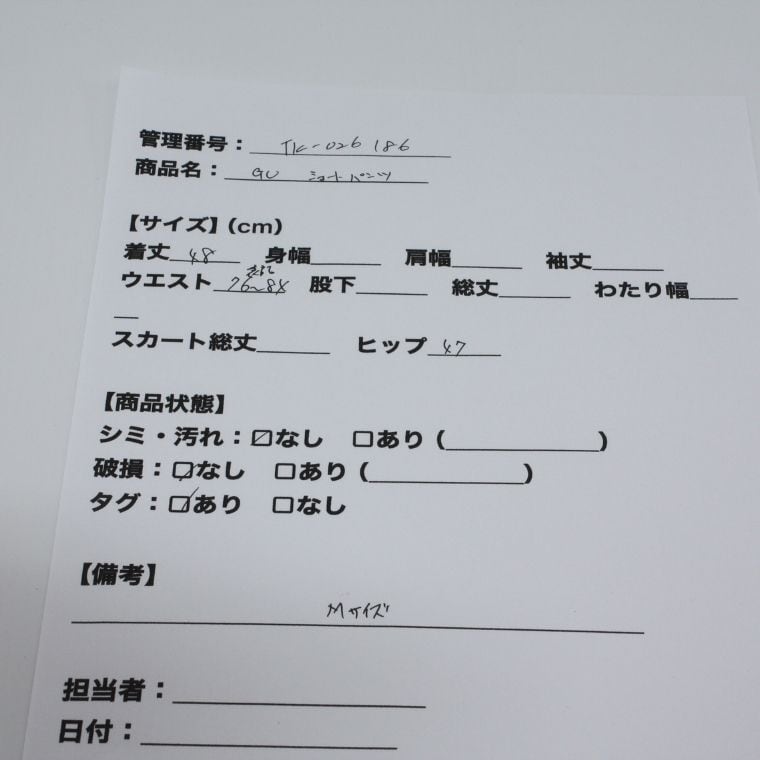 管理番号：TK-026186
商品名：GU ショートパンツ
【サイズ】（cm）
着丈 48 身幅 肩幅 袖丈
ウエスト 76~84 股下 総丈 わたり幅
スカート総丈 ヒップ 47
【商品状態】
シミ・汚れ：☑なし ☐あり（ ）
破損：☑なし ☐あり（ ）
タグ：☑あり ☐なし
【備考】
Mサイズ
担当者：
日付：